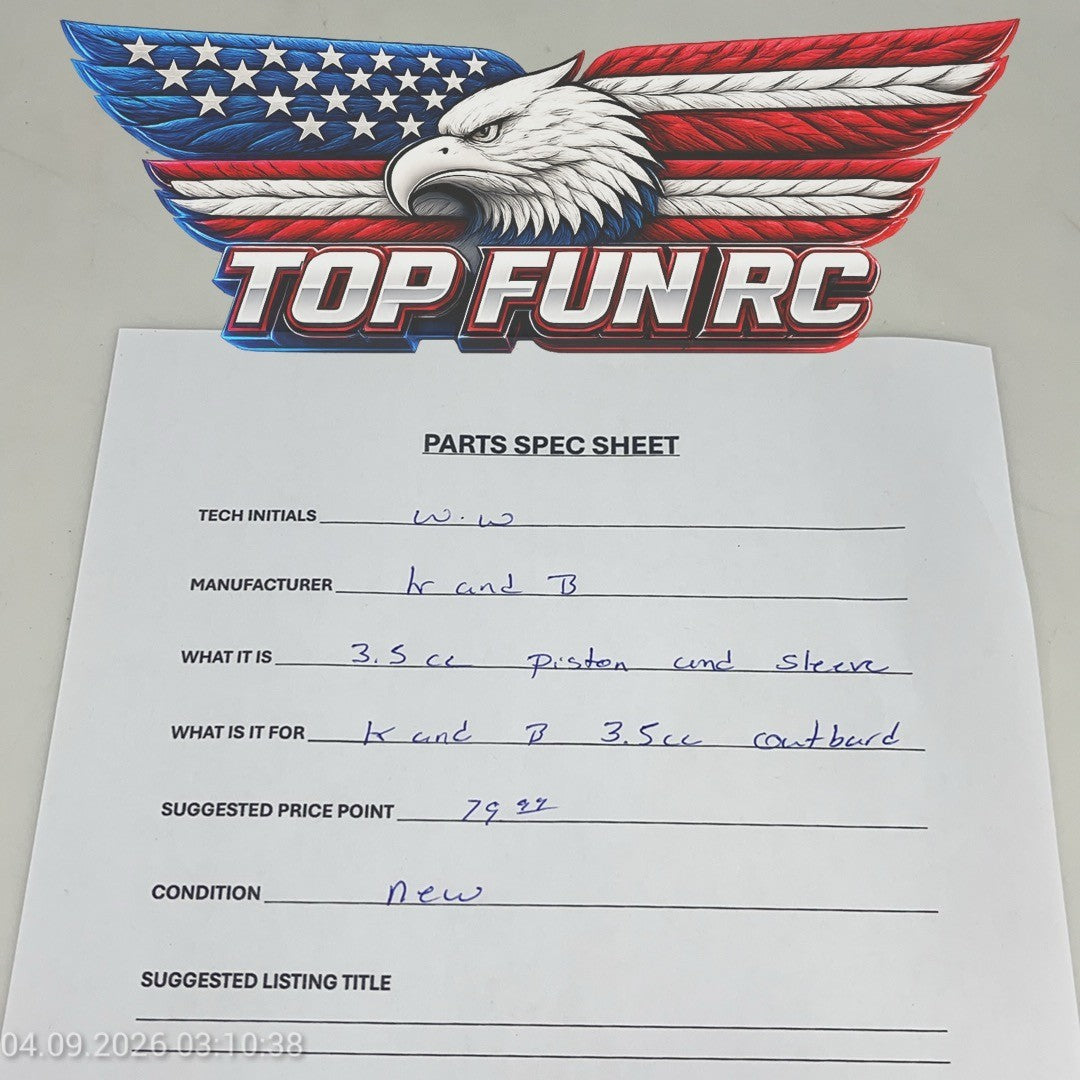 TOP FUN RC
PARTS SPEC SHEET
TECH INITIALS W.W
MANUFACTURER K and B
WHAT IT IS 3.5 cc piston and sleeve
WHAT IS IT FOR K and B 3.5cc outbard
SUGGESTED PRICE POINT 79 99
CONDITION new
SUGGESTED LISTING TITLE
04.09.2026 03:10:38